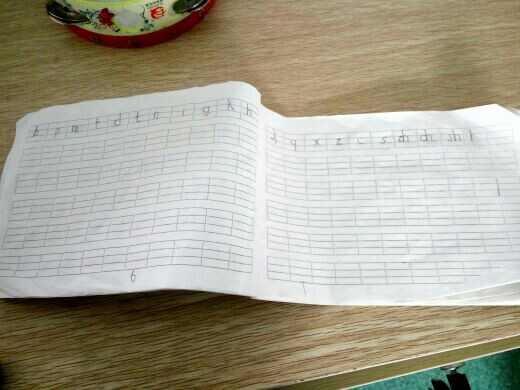 b p m f d t n l g k h
j q x z c s zh ch sh r
6